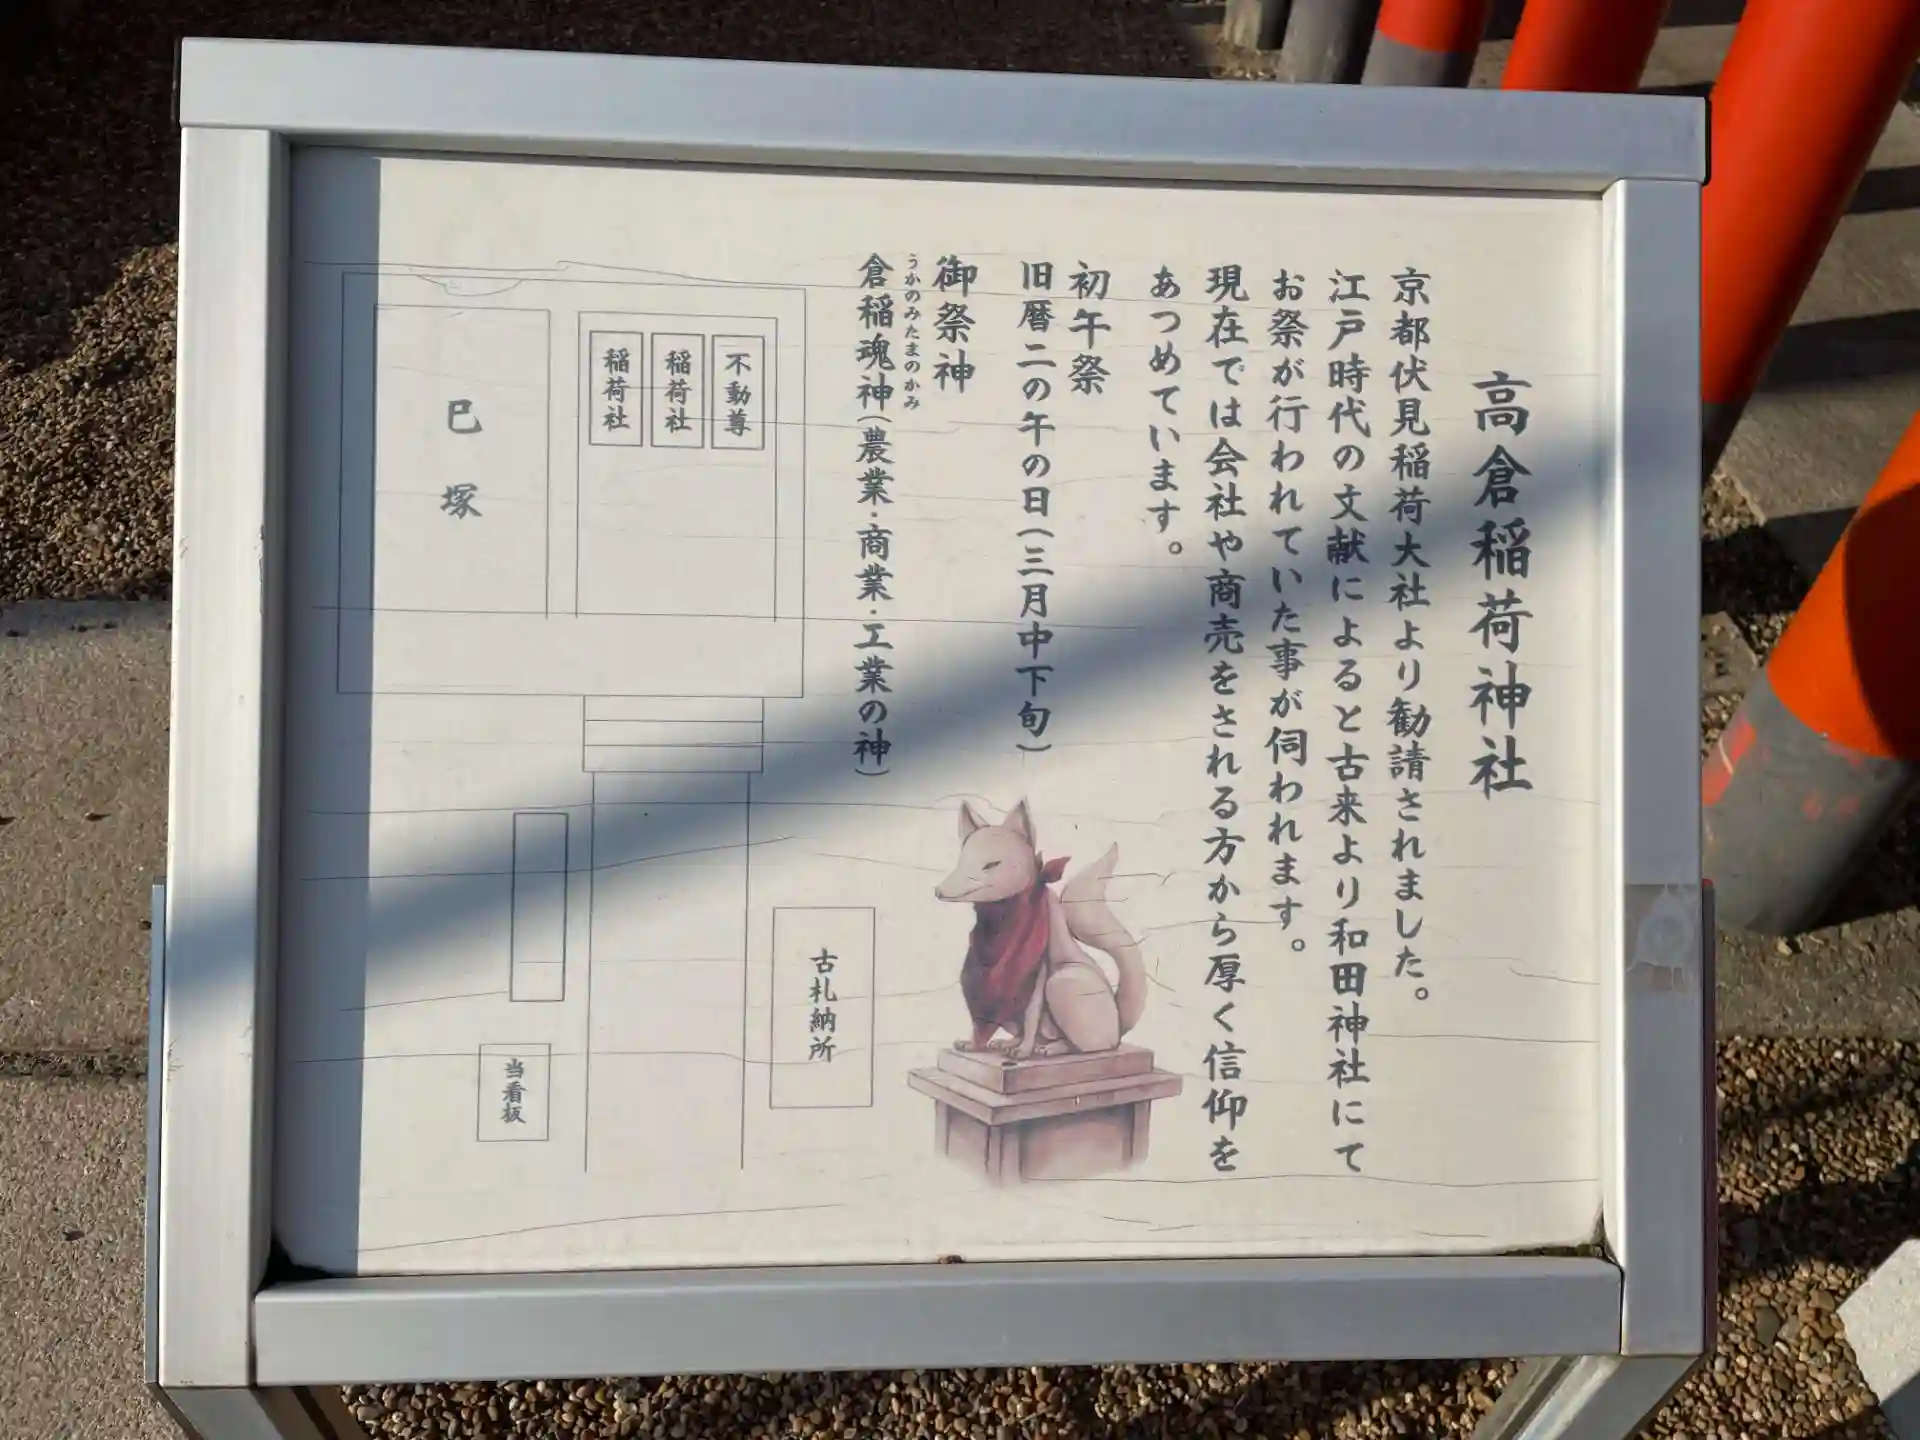 高倉稲荷神社
京都伏見稲荷大社より勧請されました。
江戸時代の文献によると古来より和田神社にて
お祭が行われていた事が伺われます。
現在では会社や商売をされる方から厚く信仰を
あつめています。
初午祭
旧暦二の午の日(三月中下旬)
御祭神
うかのみたまのかみ
倉稲魂神(農業・商業・工業の神)
不動尊
稲荷社
稲荷社
巳塚
古札納所
当看板